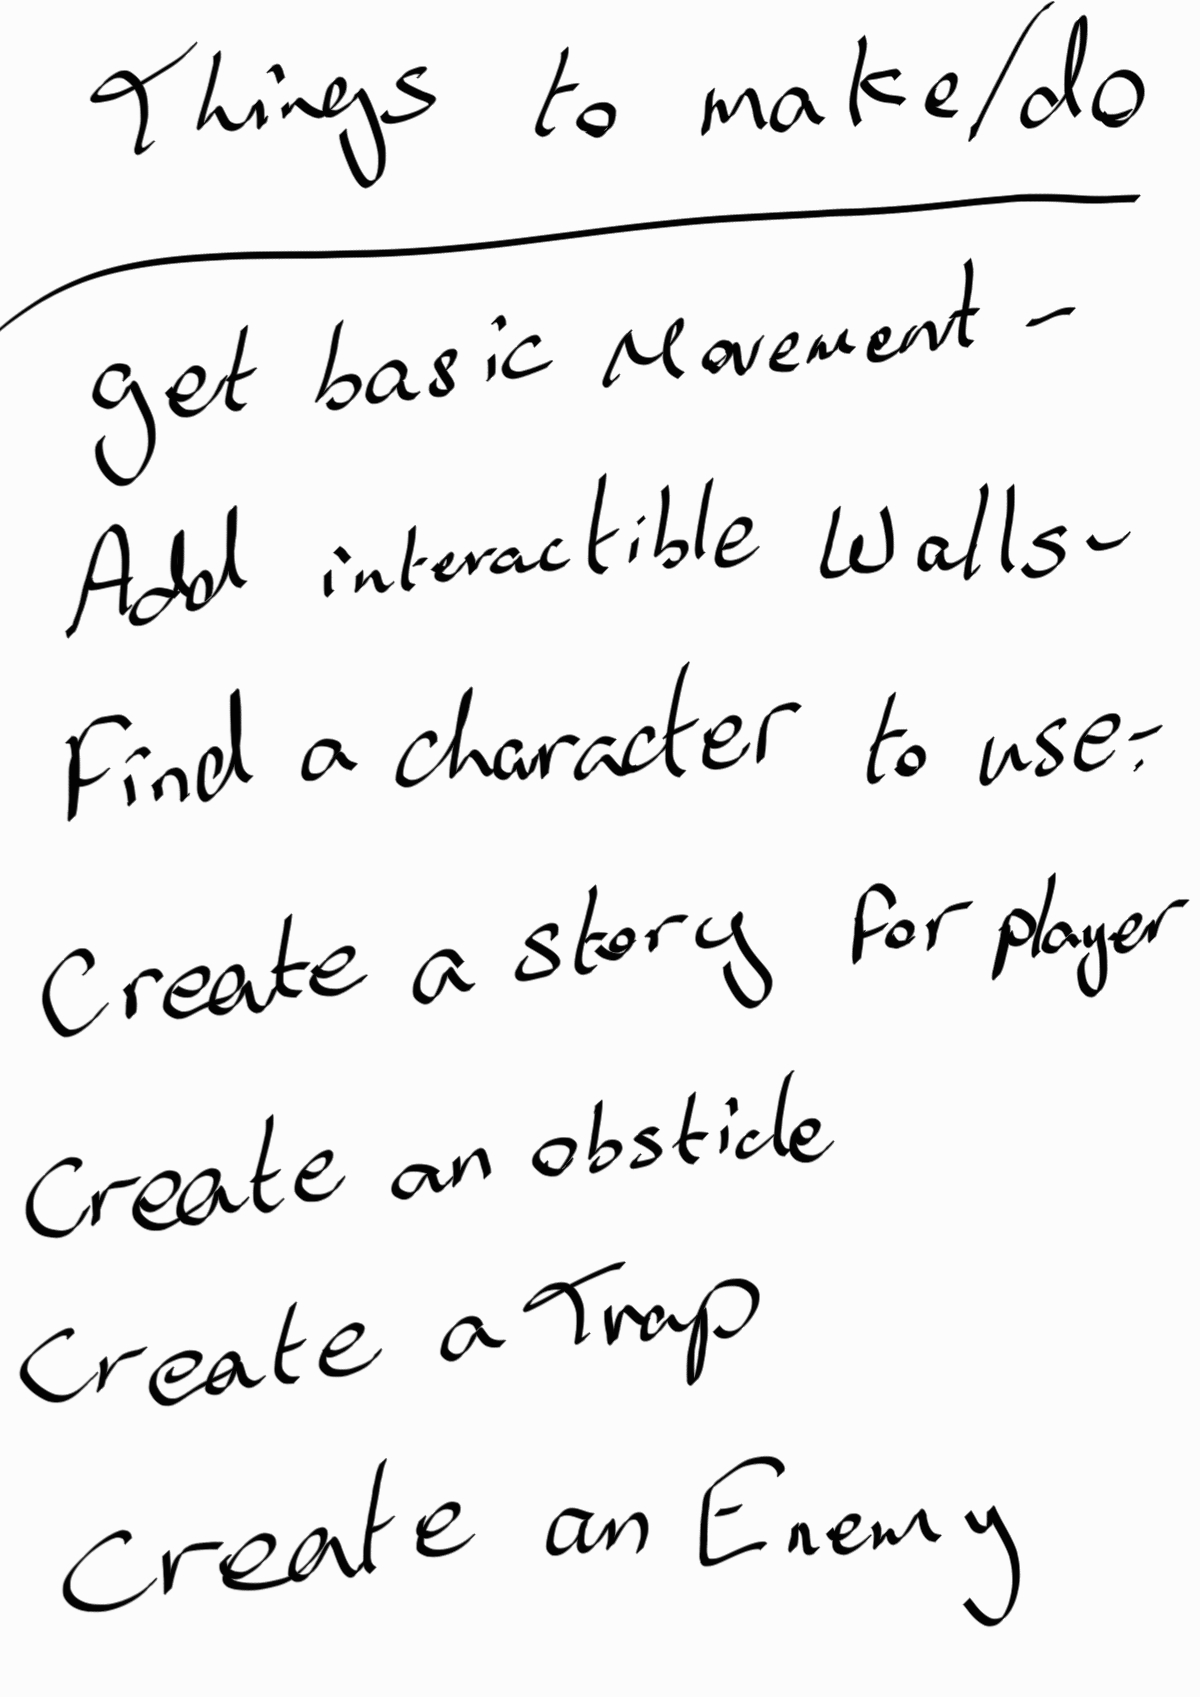 Things to make/do
get basic Movement -
Add interactible Walls -
Find a character to use -
Create a story for player
Create an obsticle
Create a Trap
Create an Enemy